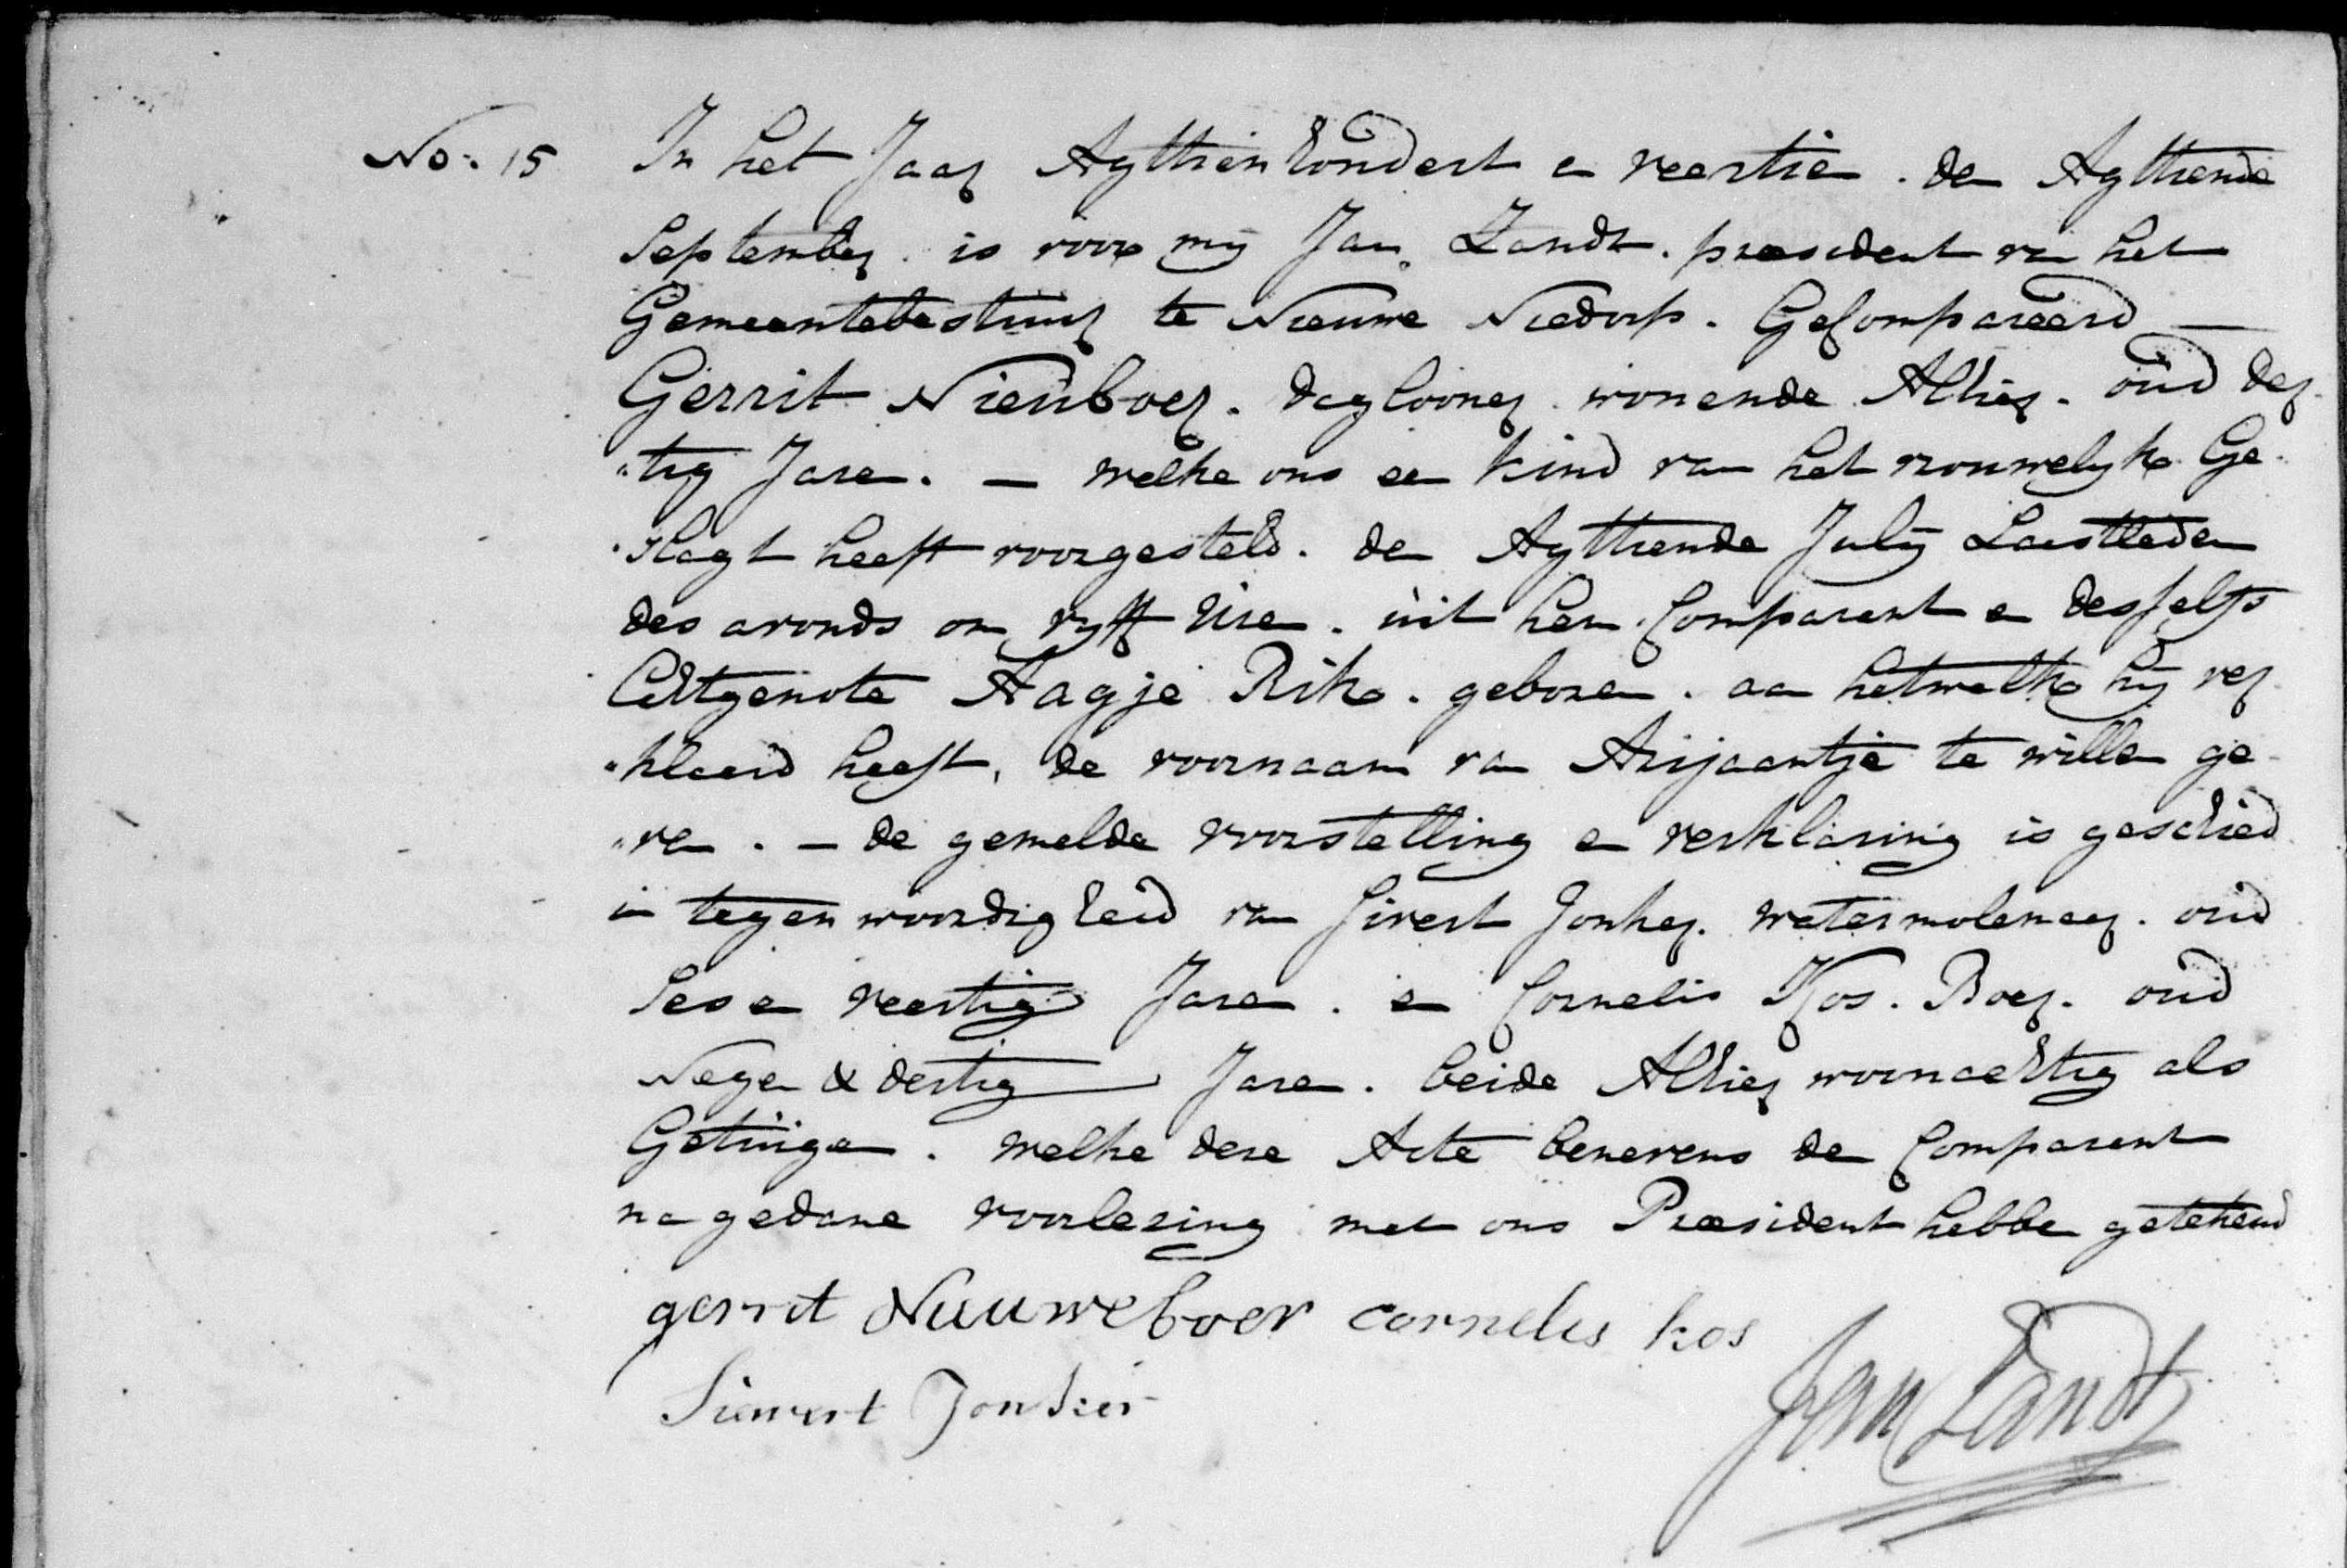 No. 15 In het Jaar Agttienhondert en veertien. den Agttiende
September. is voor mij Jan Zandt. præsident van het
Gemeentebestuur te Nieuwe Niedorp. Gecompareerd —
Gerrit Nieuboer. daglooner. wonende Alhier. oud der-
"tig Jaren. — welke ons een kind van het vrouwelyke Ge-
"slagt heeft voorgesteld. den Agttiende July Laastleden
des avonds om vyff Uren. uit hem Comparant en desselfs
Echtgenote Aagje Rik. geboren. aan hetwelke hij ver-
"klaard heeft, de voornaam van Arijaantje te willen ge-
"ven. — de gemelde voorstelling en verklaring is geschied
in tegenwoordigheid van Sivert Jonker. watermolenaar. oud
Ses en veertig Jaren. en Cornelis Kos. Boer. oud
Negen & dertig Jaren. beide Alhier woonachtig als
Getuigen. welke dese Acte benevens de Comparant
na gedane voorlezing met ons Præsident hebben getekend
gerrit Nieuweboer cornelis kos
Siewert Jonker
Jan Zandt